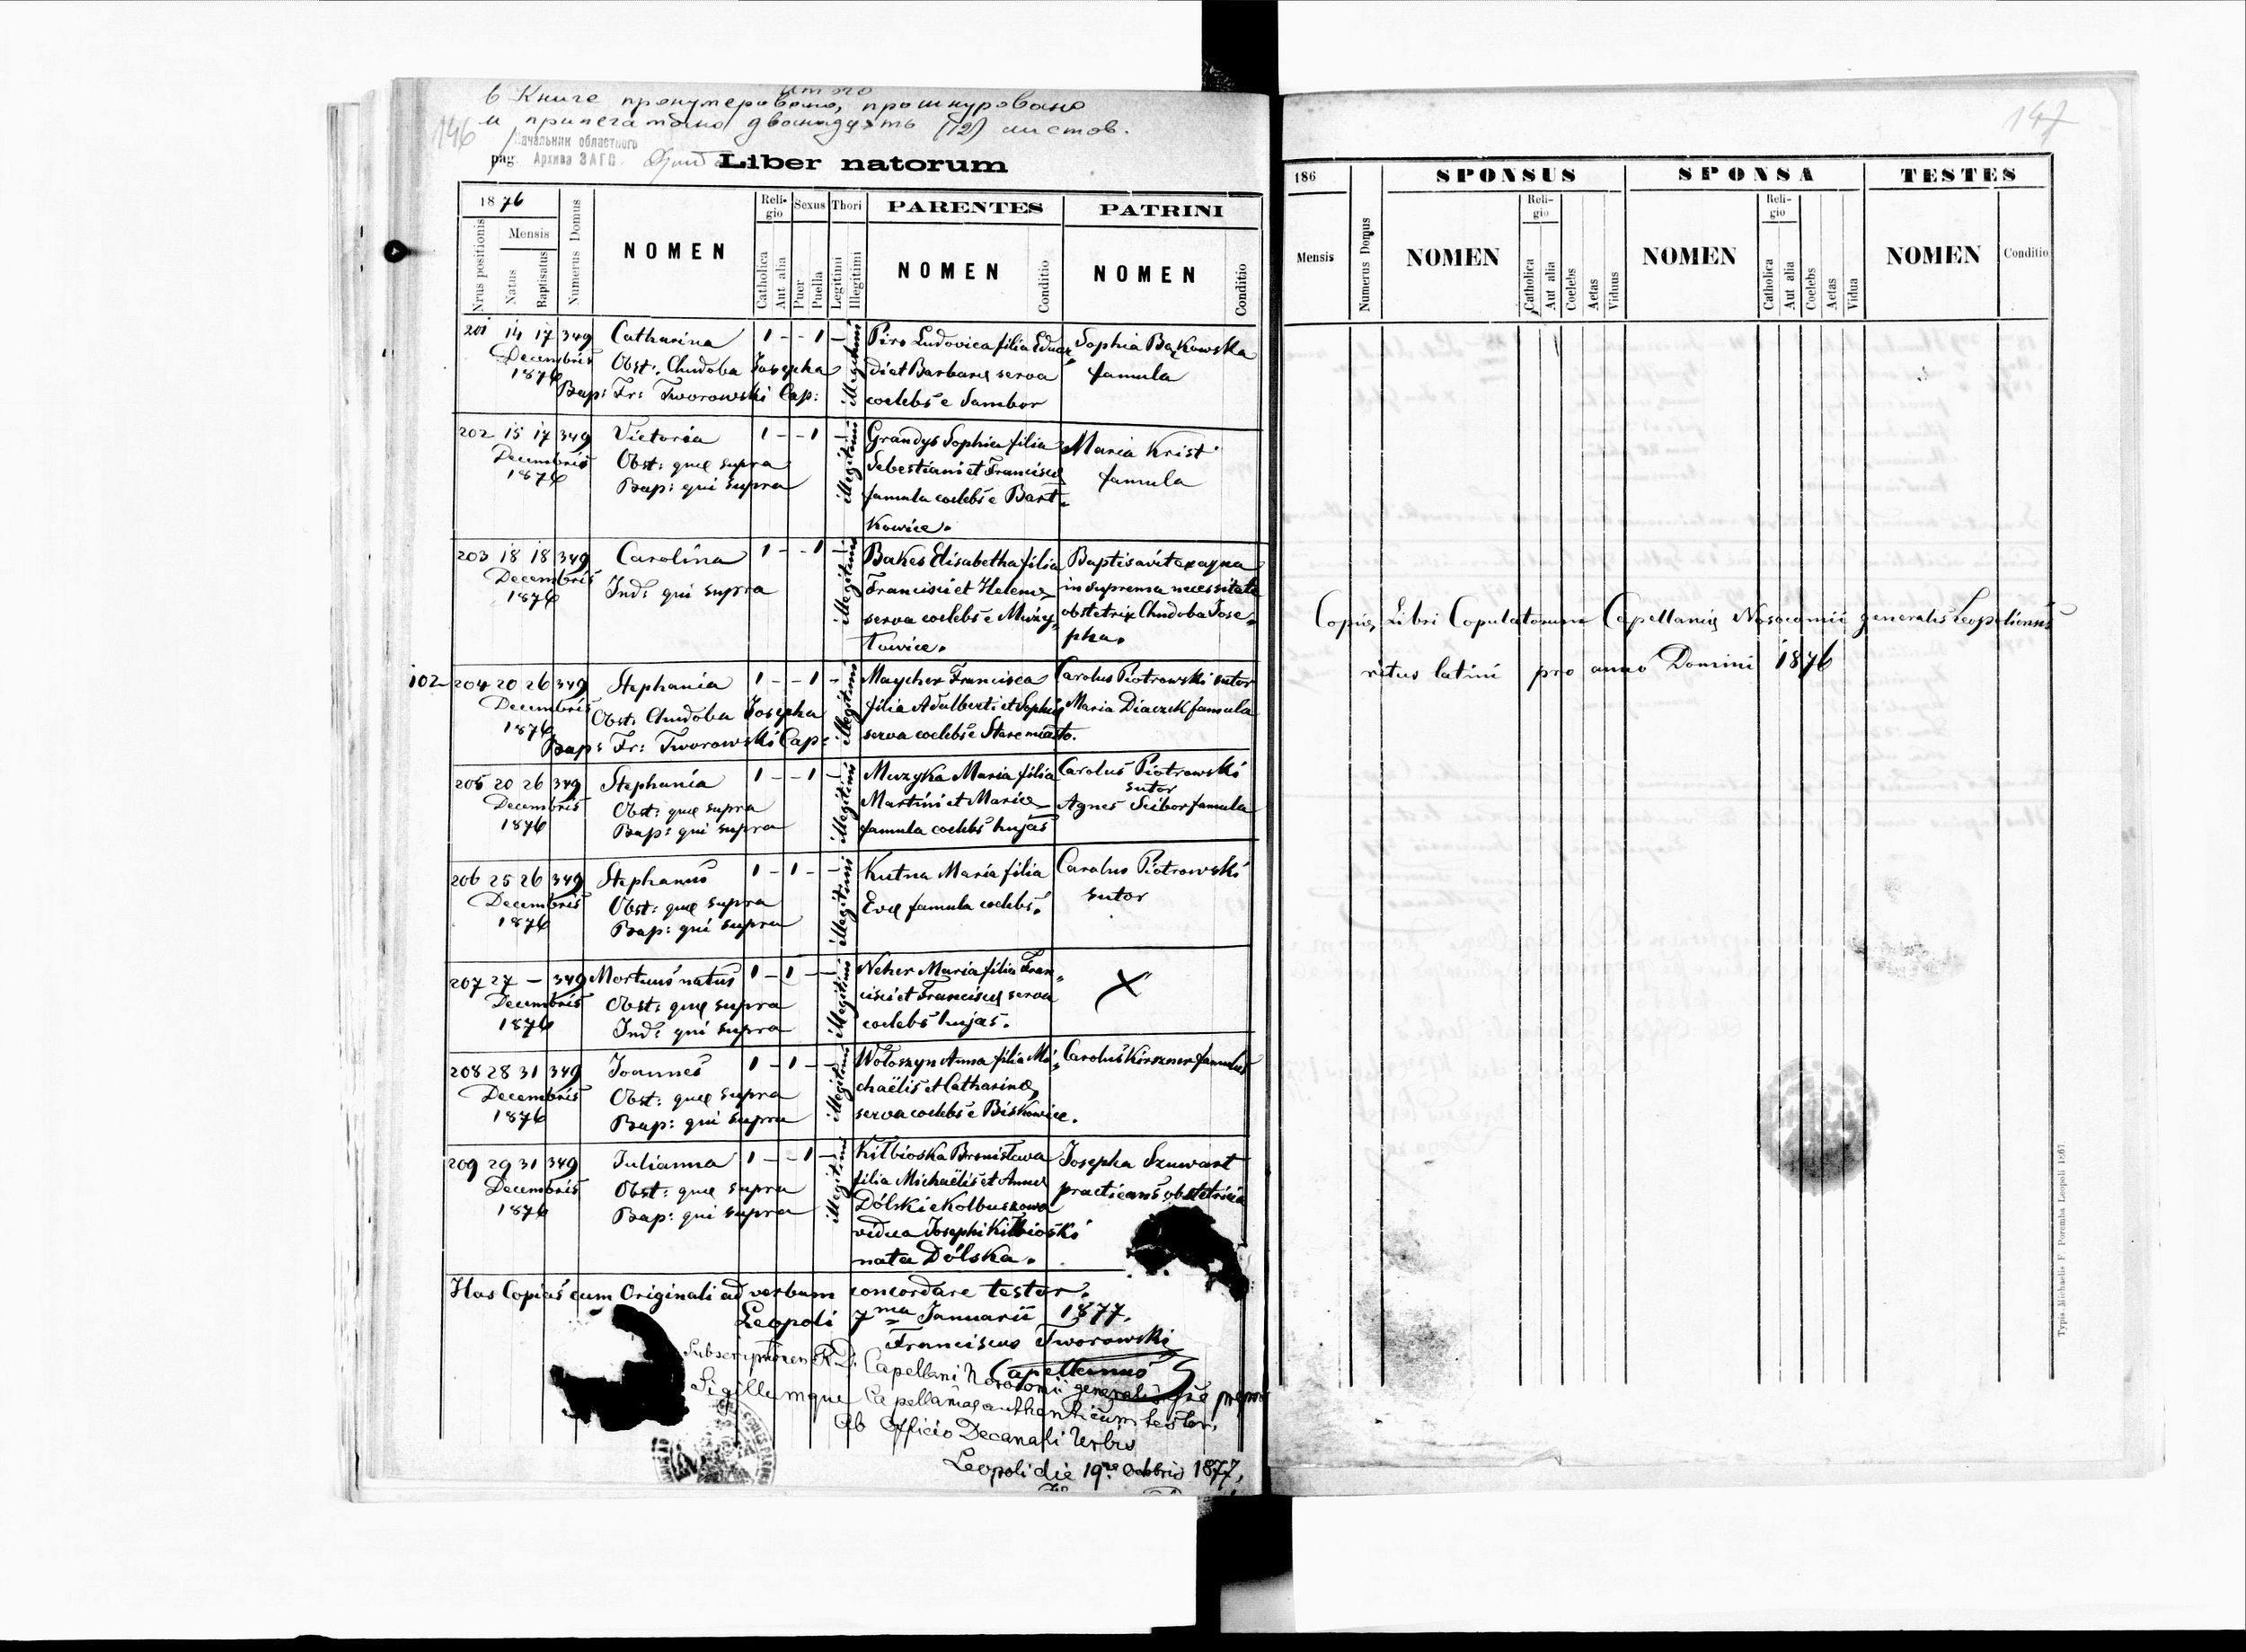 итого
в Книге пронумеровано, прошнуровано
и припечатано двенадцать (12) листов.
146
Начальник областного
Архива ЗАГС.
pag
Liber natorum
1876
Nrus positionis
Mensis
Natus
Baptisatus
Numerus Domus
NOMEN
Religio
Catholica
Aut alia
Sexus
Puer
Puella
Thori
Legitimi
Illegitimi
PARENTES
NOMEN
Conditio
PATRINI
NOMEN
Conditio
201 14 17 349 Catharina 1 - - 1 - illegitimi Piro Ludovica filia Eduar Sophia Bąkowska
Decembris Obst: Chudoba Josepha di et Barbaræ serva famula
1876 Bap: Fr: Tworowski Cap: coelebs e Sambor
202 15 17 349 Victoria 1 - - 1 - illegitimi Grandys Sophia filia Maria Krist
Decembris Obst: quæ supra Sebestiani et Franciscæ famula
1876 Bap: qui supra famula coelebs e Bart-
kowice.
203 18 18 349 Carolina 1 - - 1 - illegitimi Bakes Elisabetha filia Baptisavit ex aqua
Decembris Ind: qui supra Francisci et Helenæ in suprema necessitate
1876 serva coelebs e Muży- obstetrix Chudoba Jose-
łowice. pha.
102 204 20 26 349 Stephania 1 - - 1 - illegitimi Maycher Francisca Carolus Piotrowski sutor
Decembris Obst: Chudoba Josepha filia Adalberti et Sophiæ Maria Diaczek famula
1876 Bap: Fr: Tworowski Cap: serva coelebs e Staremiasto.
205 20 26 349 Stephania 1 - - 1 - illegitimi Muzyka Maria filia Carolus Piotrowski
Decembris Obst: quæ supra Martini et Mariæ sutor
1876 Bap: qui supra famula coelebs hujas Agnes Scibor famula
206 25 26 349 Stephanus 1 - 1 - - illegitimi Kutna Maria filia Carolus Piotrowski
Decembris Obst: quæ supra Evæ famula coelebs. sutor
1876 Bap: qui supra
207 27 - 349 Mortuus natus 1 - 1 - - illegitimi Neher Maria filia Fran- X
Decembris Obst: quæ supra cisci et Franciscæ serva
1876 Ind: qui supra coelebs hujas.
208 28 31 349 Joannes 1 - 1 - - illegitimi Wołoszyn Anna filia Mi- Carolus Kirszner famulus
Decembris Obst: quæ supra chaëlis et Catharinæ
1876 Bap: qui supra serva coelebs e Biskowice.
209 29 31 349 Julianna 1 - - 1 - illegitimi Kitbioska Bronisława Josepha Szuwart
Decembris Obst: quæ supra filia Michaëlis et Annæ practicans obstetricia
1876 Bap: qui supra Dólski e Kolbuszowa
vidua Josephi Kitbioski
nata Dólska.
Has Copias cum Originali ad verbum concordare testor.
Leopoli 7ma Januarii 1877.
Franciscus Tworowski
Capellanus
Subscriptionem R.D. Capellani Nosocomii generalis
Sigillumque Capellaniæ authenticum testor.
Ab Officio Decanali Urbis
Leopoli die 19ne Octobris 1877.
147
186
Mensis
Numerus Domus
SPONSUS
NOMEN
Religio
Catholica
Aut alia
Coelebs
Aetas
Viduus
SPONSA
NOMEN
Religio
Catholica
Aut alia
Coelebs
Aetas
Vidua
TESTES
NOMEN
Conditio
Copiæ Libri Copulatorum Capellaniæ Nosocomii generalis Leopoliensis
ritus latini pro anno Domini 1876
Typis Michaelis F. Poremba Leopoli 1867